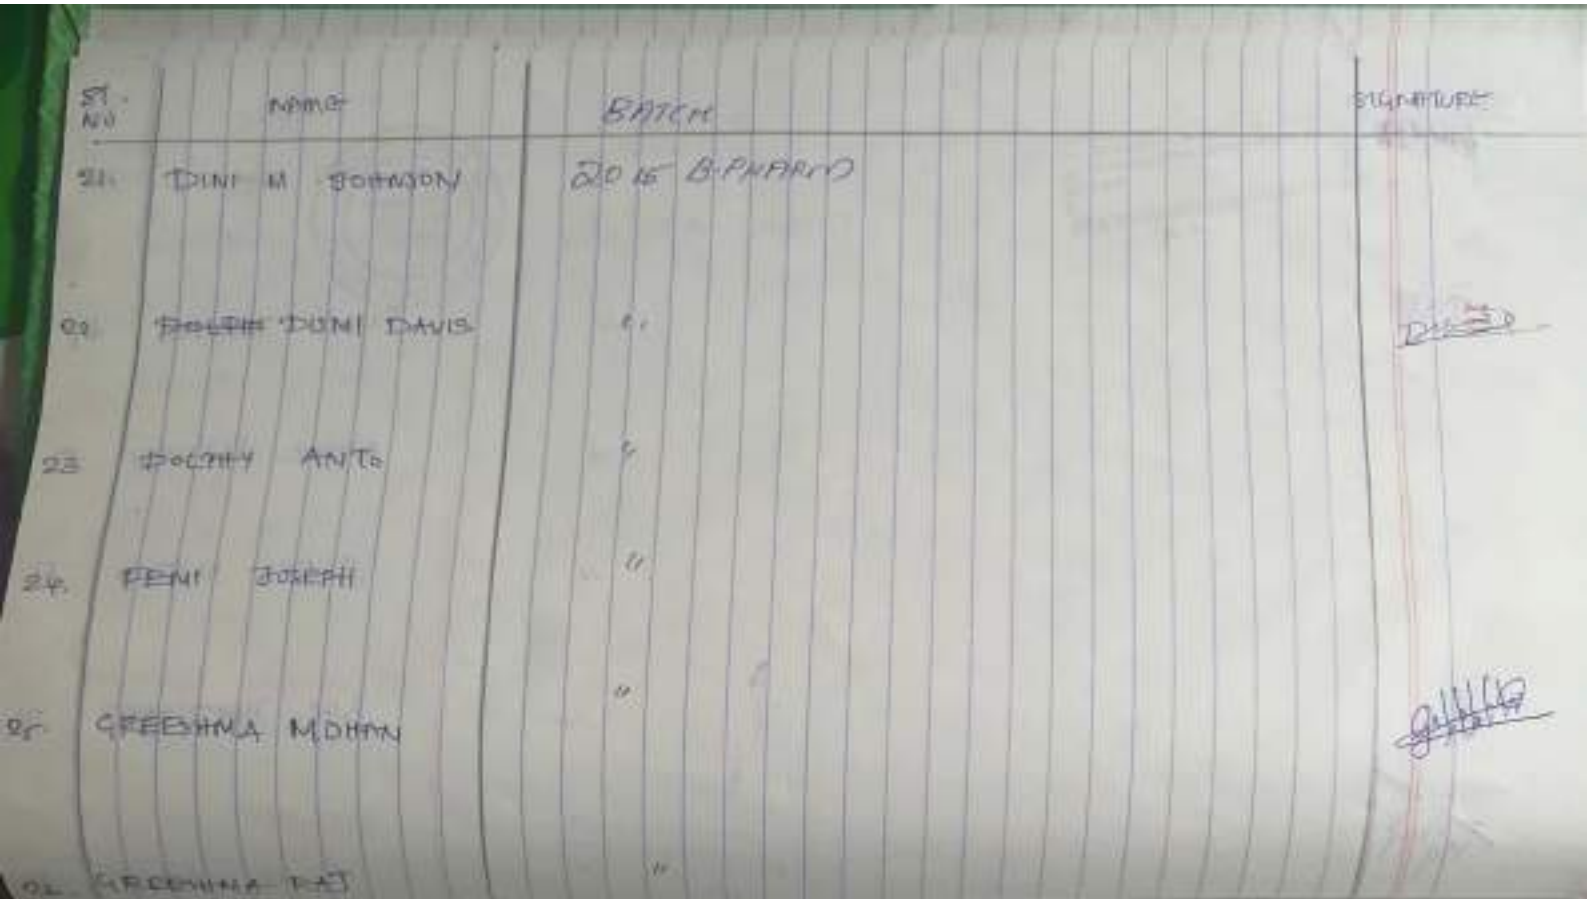 Sl. No NAME BATCH SIGNATURE
21. DINI M JOHNSON 2015 B.PHARM
22. DONI DAVIS "
23 DOLPHY ANTO "
24. FEMI JOSEPH "
25. GREESHMA MOHAN "
26. GREESHMA RAJ "